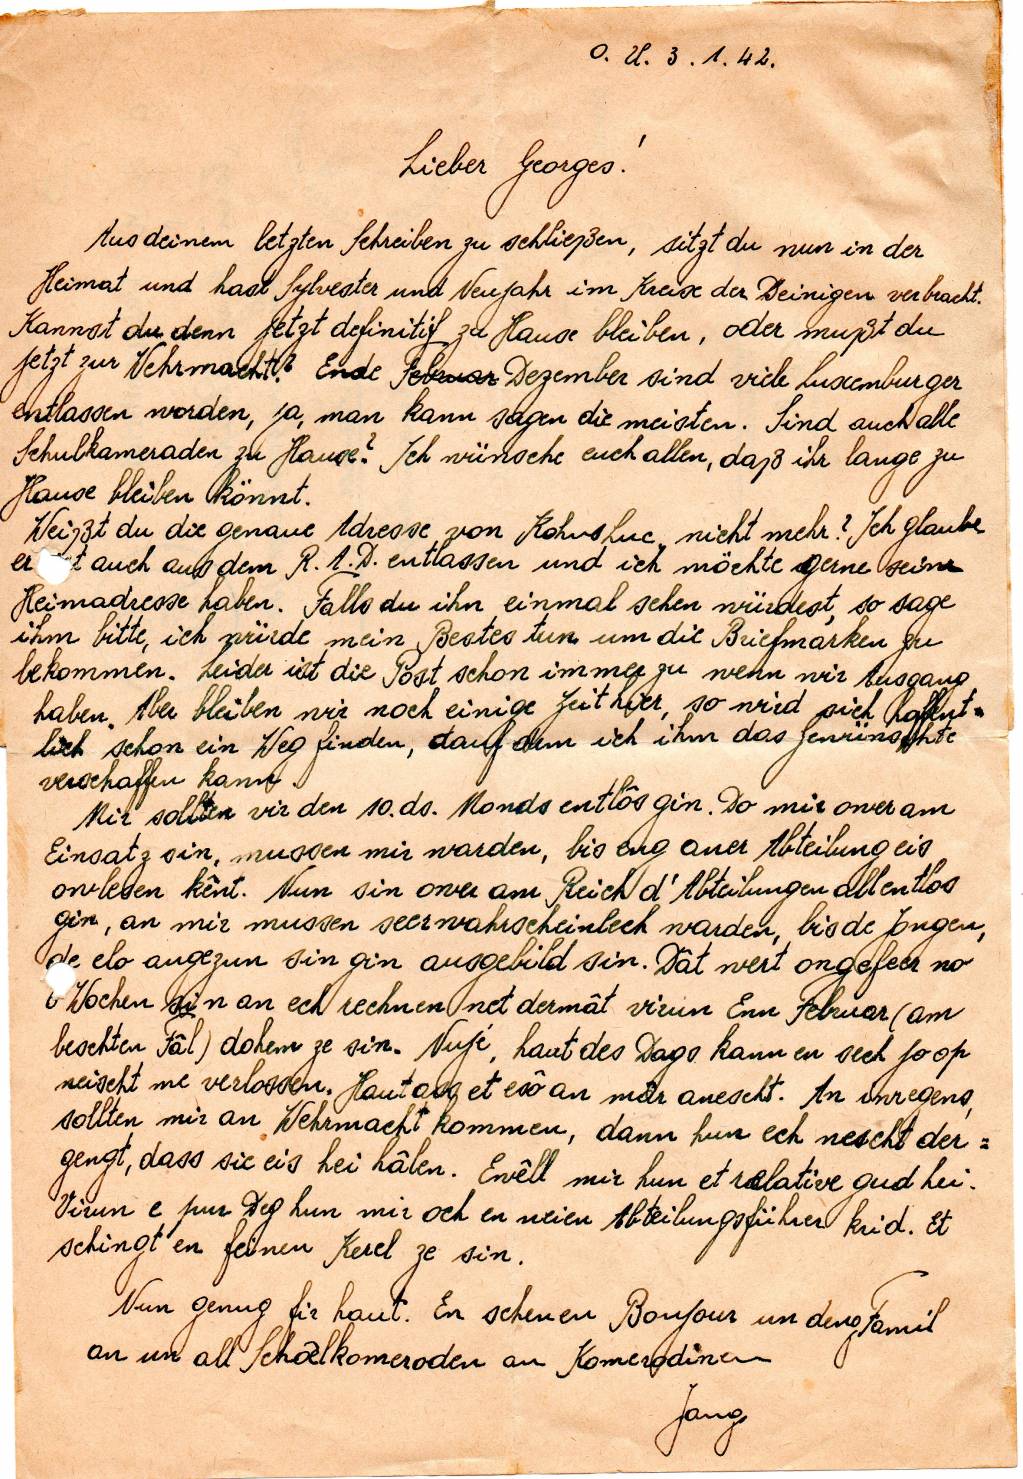 O. U. 3. 1. 42.
Lieber Georges!
Aus deinem letzten Schreiben zu schließen, sitzt du nun in der
Heimat und hast Sylvester und Neujahr im Kreise der Deinigen verbracht.
Kannst du denn jetzt definitif zu Hause bleiben, oder mußt du
jetzt zur Wehrmacht? Ende Februar Dezember sind viele Luxemburger
entlassen worden, ja, man kann sagen die meisten. Sind auch alle
Schulkameraden zu Hause? Ich wünsche euch allen, daß ihr lange zu
Hause bleiben könnt.
Weißt du die genaue Adresse von Kohns Luc. nicht mehr? Ich glaube
er t auch aus dem R. A. D. entlassen und ich möchte gerne seine
Heimadresse haben. Falls du ihn einmal sehen würdest, so sage
ihm bitte, ich würde mein Bestes tun um die Briefmarken zu
bekommen. Leider ist die Post schon immer zu wenn wir Ausgang
haben. Aber bleiben wir noch einige Zeit hier, so wird sich hoffent=
lich schon ein Weg finden, auf dem ich ihm das Gewünschte
verschaffen kann.
Mir sollten vir den 10. ds. Monds entlôs gin. Do mir ower am
Einsatz sin, mussen mir warden, bis eng aner Abteilung eis
owlesen kênt. Nun sin ower am Reich d'Abteilungen all entlos
gin, an mir mussen seer wahrscheinlech warden, bis de Jongen,
de elo angezun sin gin ausgebild sin. Dât wert ongefeer no
6 Wochen sin an ech rechnen net dermât virun Enn Februar (am
beschten Fâl) dohem ze sin. Nujé, haut des Dags kann en sech jo op
neischt me verlossen. Haut ass et esô an mar anescht. An iwregens,
sollten mir an Wehrmacht kommen, dann hun ech nescht der=
gengt, dass sie eis hei hâlen. Ewêll mir hun et relative gud hei.
Virun e pur Deg hun mir och en neien Abteilungsführer krid. Et
schingt en feinen Kerel ze sin.
Nun genug fir haut. En schenen Bonjour un deng Famil
an un all Schoelkomeroden an Komerodinen
Jang